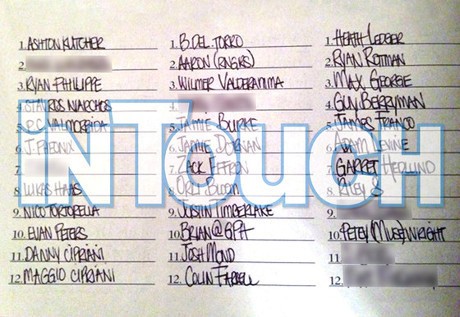 1. ASHTON KUTCHER
2.
3. RYAN PHILLIPE
4. STAVROS NIARCHOS
5. P.C. VALMORBIDA
6. J. PHEONIX
7.
8. LUKAS HAAS
9. NICO TORTORELLA
10. EVAN PETERS
11. DANNY CIPRIANI
12. MAGGIO CIPRIANI
1. B. DEL TORRO
2. AARON
3. WILMER VALDERAMA
4.
5. JAMIE BURKE
6. JAMIE DORNAN
7. ZACK EFFRON
8. ORLI BLOOM
9. JUSTIN TIMBERLAKE
10. BRIAN@GPH
11. JOSH
12. COLIN FARRELL
1. HEATH LEDGER
2. RYAN ROTTMAN
3. MAX GEORGE
4. GUY BERRYMAN
5. JAMES FRANCO
6. ADAM LEVINE
7. GARRET HEDLUND
8. RILEY S
9.
10. PETEY (MUSE) WRIGHT
11.
12.
INTOUCH